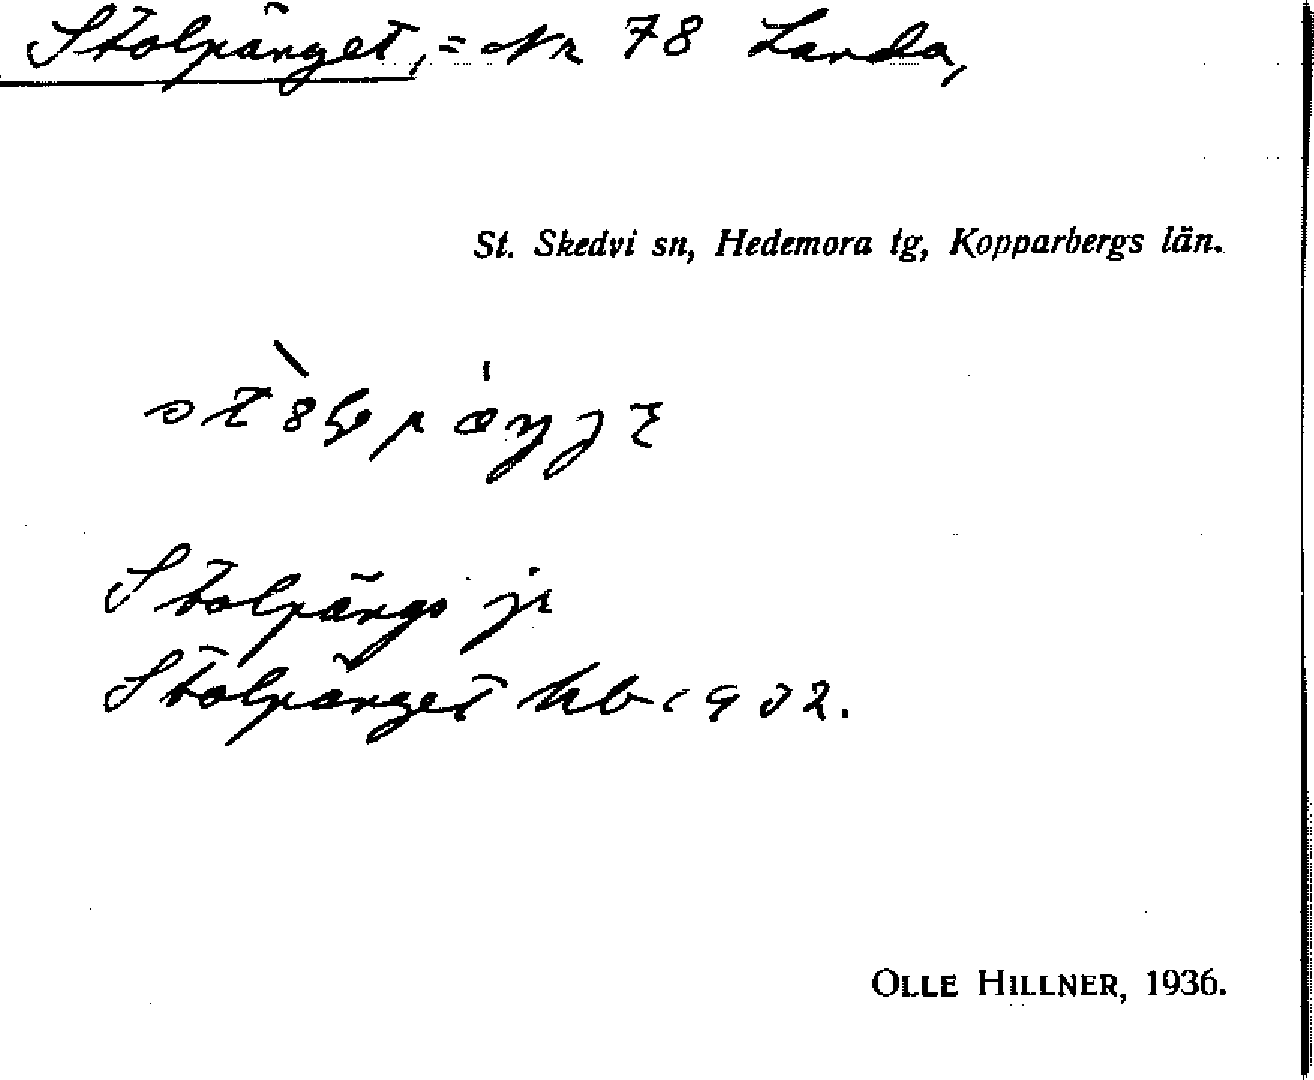 Stolpänget, = Nr 78 Landa,
St. Skedvi sn, Hedemora tg, Kopparbergs län.
Stolpängs jr
Stolpänget hb 1902.
OLLE HILLNER, 1936.